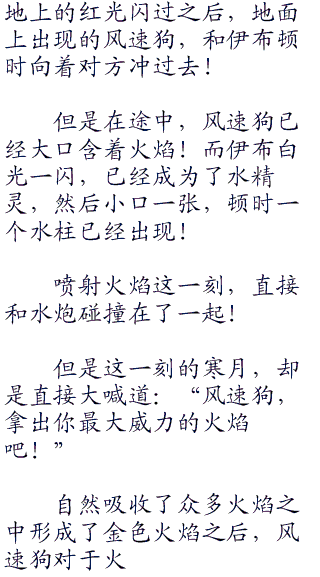 地上的红光闪过之后，地面
上出现的风速狗，和伊布顿
时向着对方冲过去！
但是在途中，风速狗已
经大口含着火焰！而伊布白
光一闪，已经成为了水精
灵，然后小口一张，顿时一
个水柱已经出现！
喷射火焰这一刻，直接
和水炮碰撞在了一起！
但是这一刻的寒月，却
是直接大喊道：“风速狗，
拿出你最大威力的火焰
吧！”
自然吸收了众多火焰之
中形成了金色火焰之后，风
速狗对于火